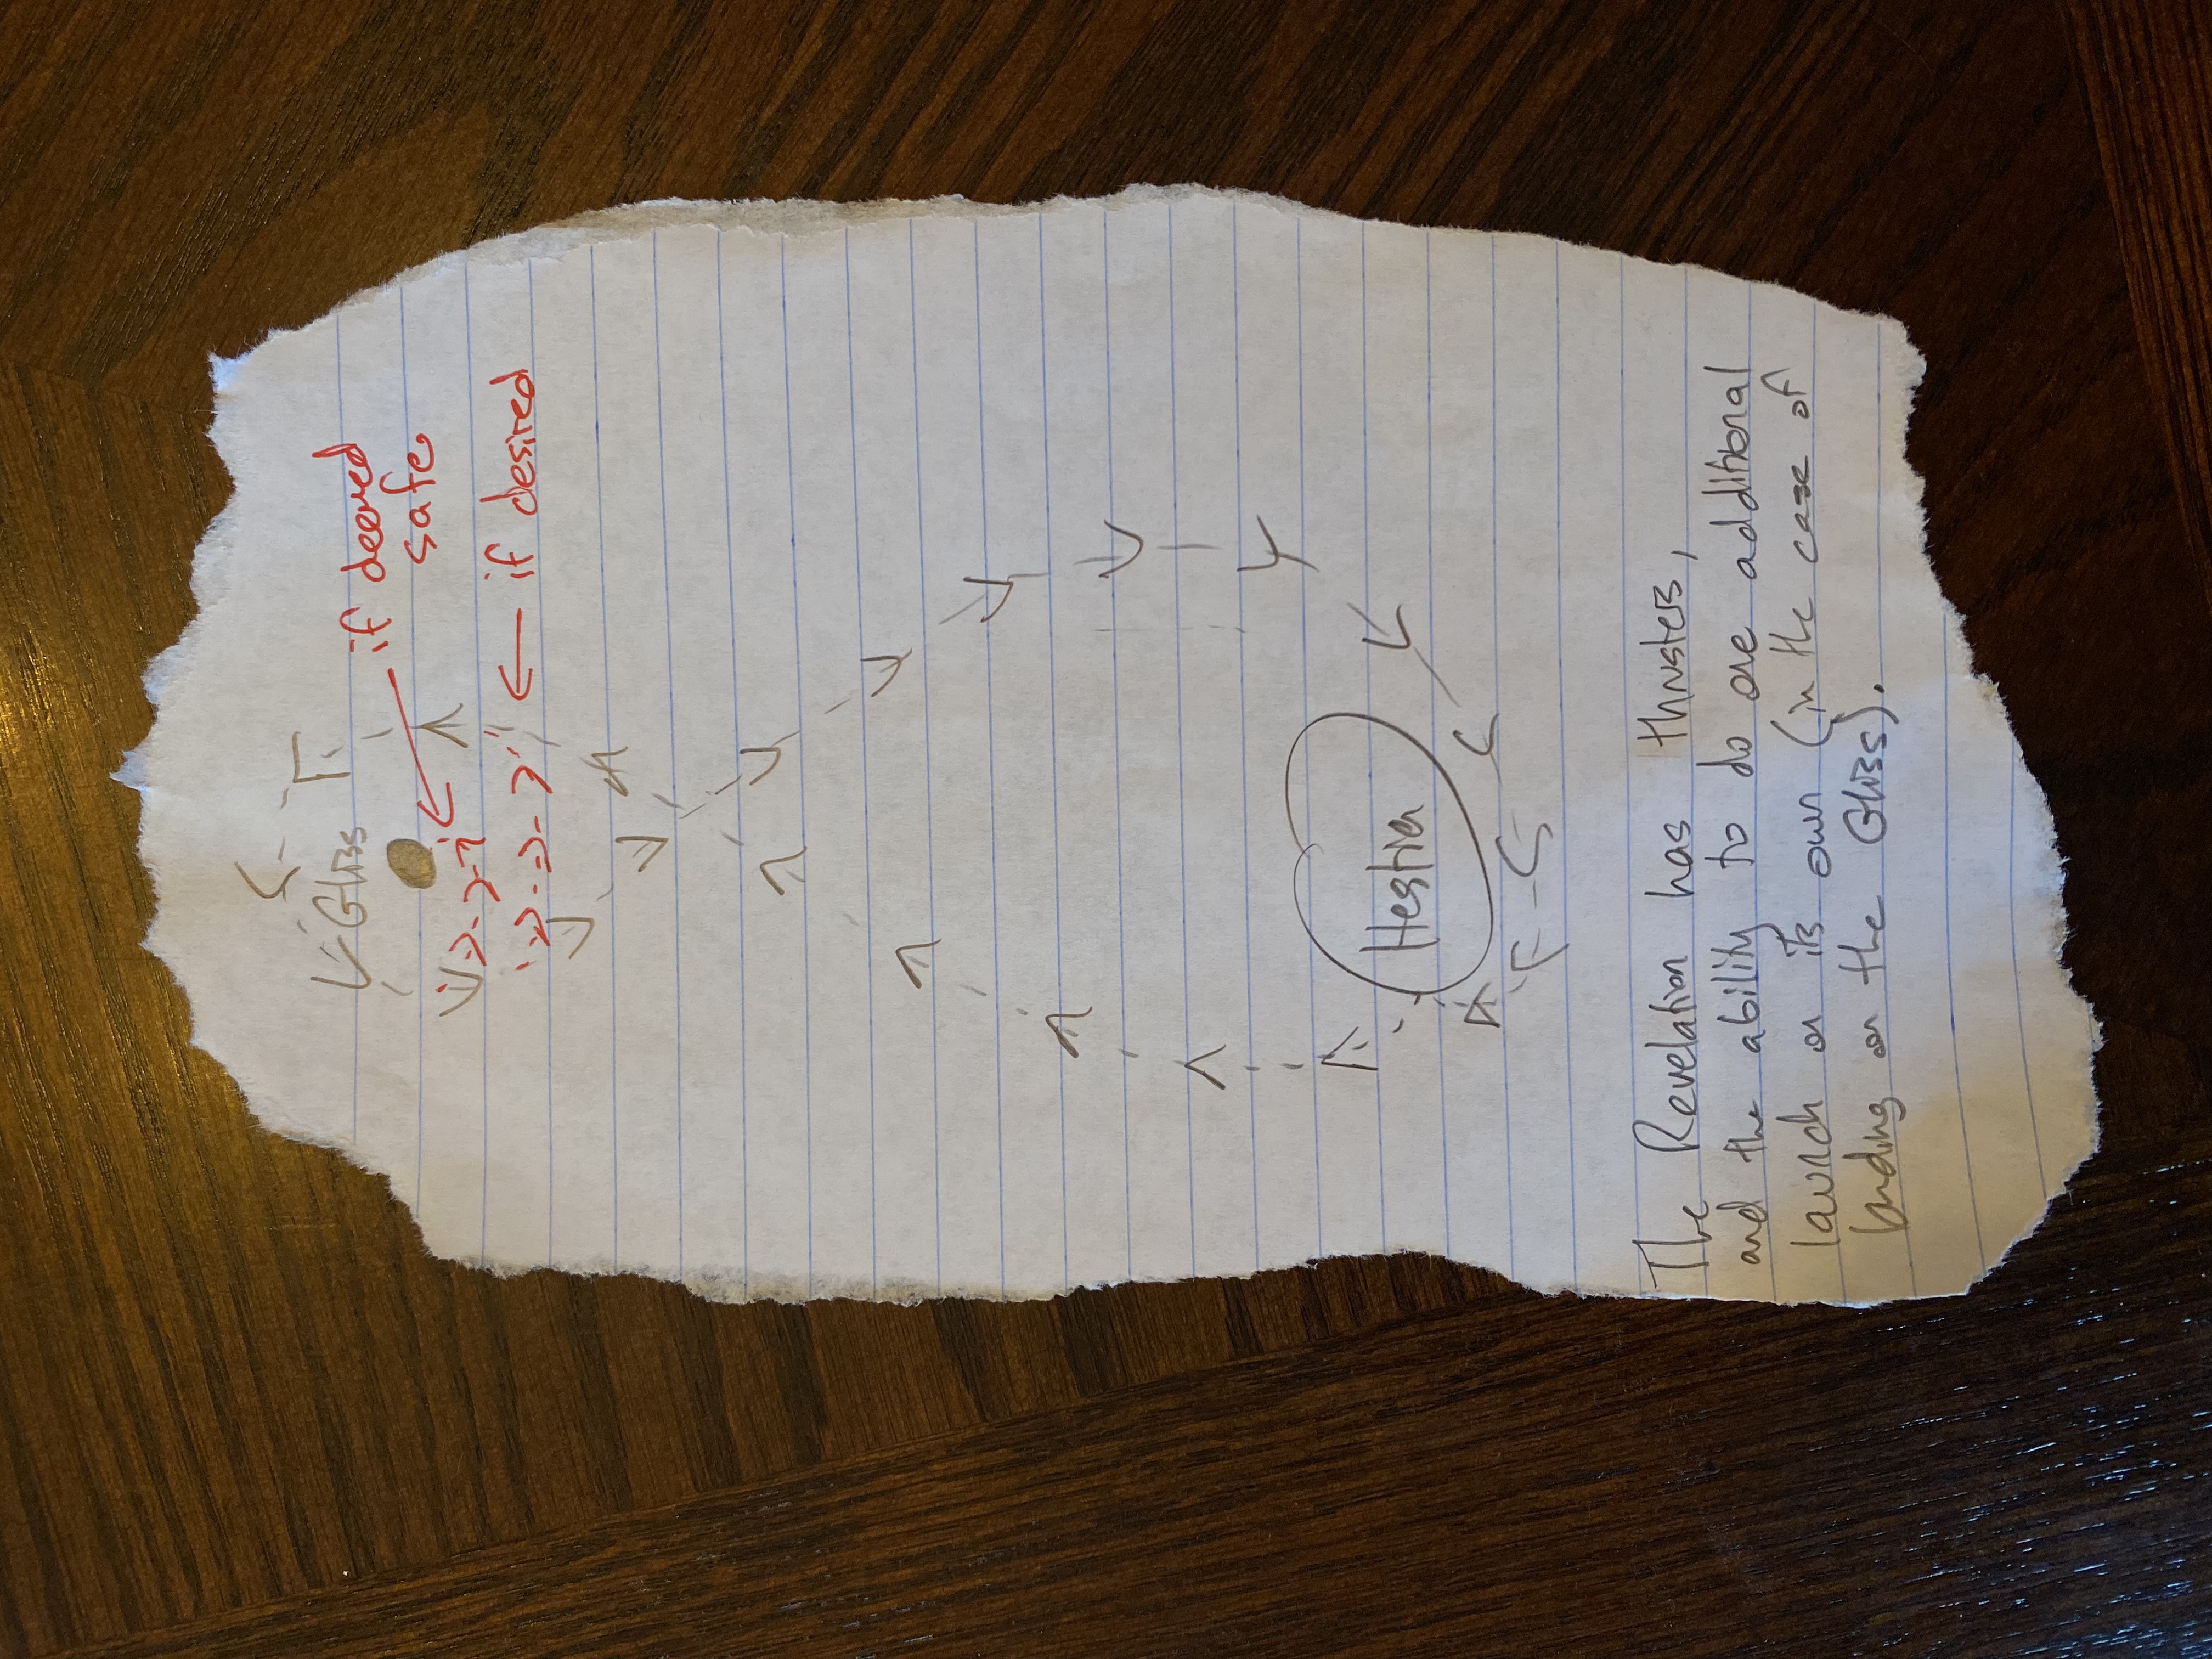 Gliss
if deemed
safe
if desired
Hestia
The Revelation has thrusters,
and the ability to do one additional
launch on its own (in the case of
landing on the Gliss).